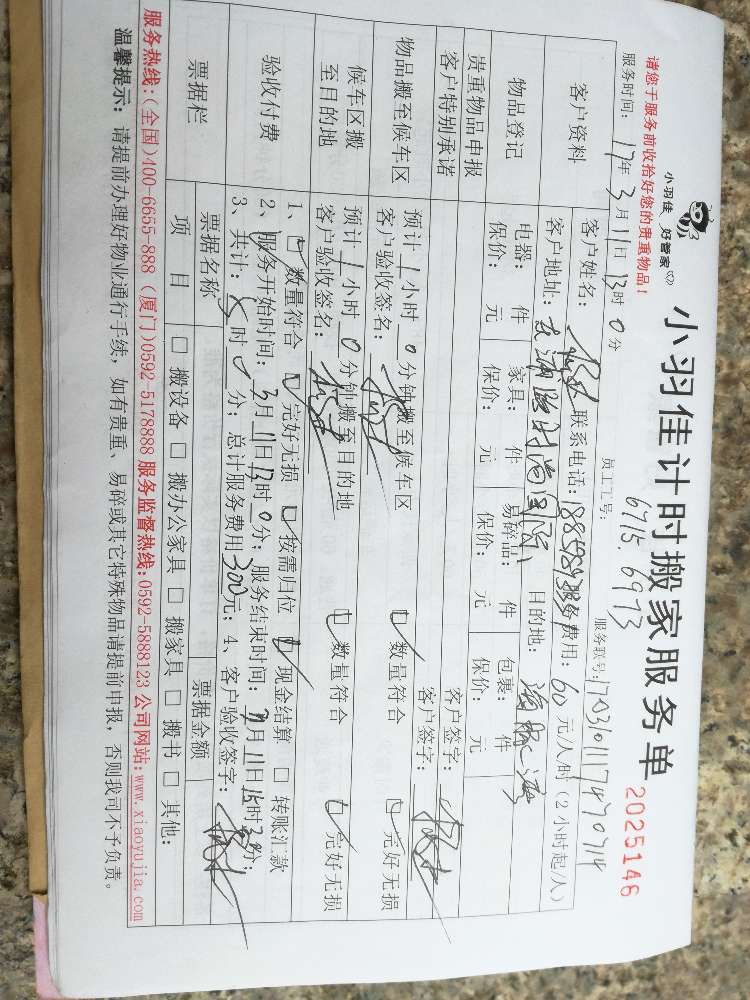 小羽佳 好管家
小羽佳计时搬家服务单
2025146
请您于服务前收拾好您的贵重物品!
员工工号: 6715. 6973
服务时间: 17年 3月 11日 13时 0分
服务职号:
客户资料
客户姓名:
联系电话:
服务费用: 60元/人/时(2小时起/人)
客户地址:
目的地:
物品登记
电器: 件 家具: 件 易碎品: 件 包裹: 件
保价: 元 保价: 元 保价: 元 保价: 元
贵重物品申报
客户签字:
客户特别承诺
客户签字:
物品搬至候车区
预计1小时0分钟搬至候车区 数量符合 完好无损
客户验收签名:
候车区搬至目的地
预计1小时0分钟搬至目的地 数量符合 完好无损
客户验收签名:
验收付费
1、 数量符合 完好无损 按需归位 现金结算 转账汇款
2、服务开始时间: 3月11日13时0分; 服务结束时间: 月11日15时30分;
3、共计: 时 分; 总计服务费用300元; 4、客户验收签字:
票据栏
票据名称
票据金额
项 目
搬设备 搬办公家具 搬家具 搬书 其他:
服务热线:(全国)400-6655-888 (厦门)0592-5178888 服务监督热线:0592-5888123 公司网站:www.xiaoyujia.com
温馨提示: 请提前办理好物业通行手续, 如有贵重、易碎或其它特殊物品请提前申报, 否则我司不予负责。